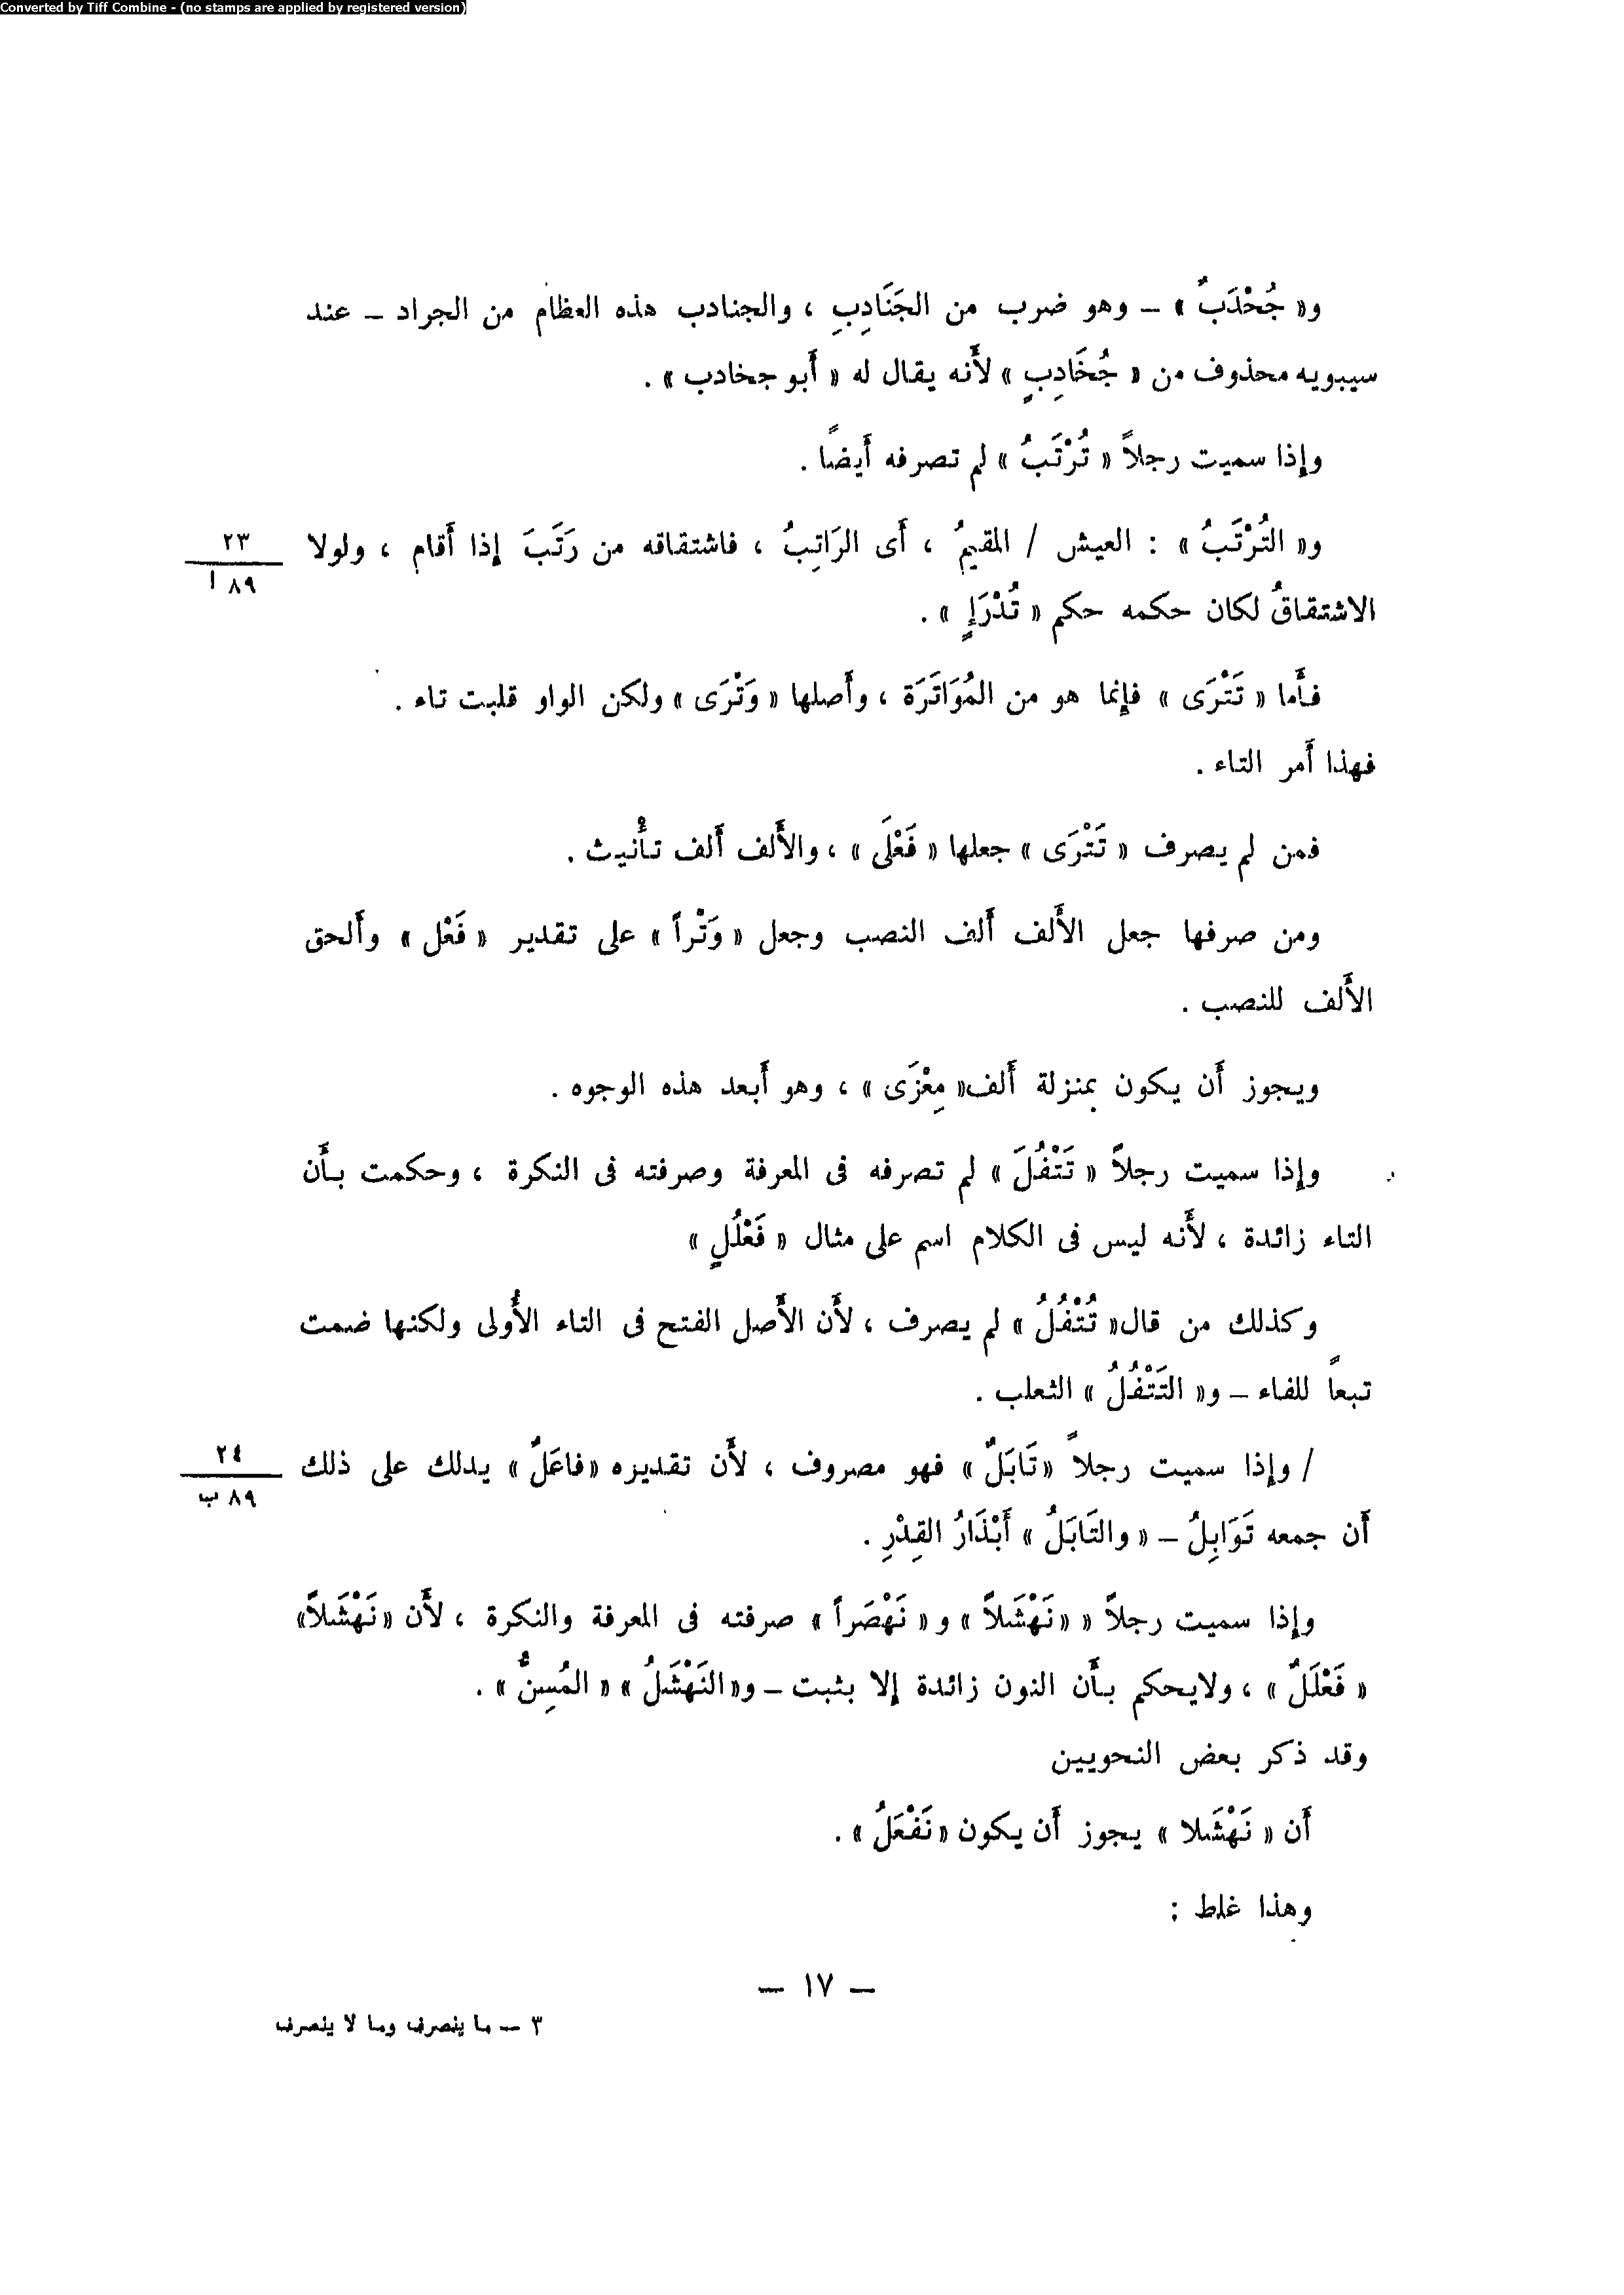 Converted by Tiff Combine - (no stamps are applied by registered version)
و« جُخْدَبٌ » – وهو ضرب من الجَنَادِبِ ، والجنادب هذه العظام من الجراد – عند
سيبويه محذوف من « جُخَادِبٍ » لأَنه يقال له « أَبو جخادب » .
وإِذا سميت رجلاً « تُرْتَبُ » لم تصرفه أَيضًا .
و« التُرْتَبُ » : العيش / المقيمُ ، أَى الرَاتِبُ ، فاشتقاقه من رَتَبَ إِذا أَقام ، ولولا
٢٣
٨٩ ا
الاشتقاقُ لكان حكمه حكم « تُدْرَإٍ » .
فأَما « تَتْرَى » فإِنما هو من المُوَاتَرَة ، وأَصلها « وَتْرَى » ولكن الواو قلبت تاء .
فهذا أَمر التاء .
فمن لم يصرف « تَتْرَى » جعلها « فَعْلَى » ، والأَلف أَلف تأْنيث .
ومن صرفها جعل الأَلف أَلف النصب وجعل « وَتْراً » على تقدير « فَعْل » وأَلحق
الأَلف للنصب .
ويجوز أَن يكون بمنزلة أَلف« مِعْزَى » ، وهو أَبعد هذه الوجوه .
وإِذا سميت رجلاً « تَتْفُلَ » لم تصرفه فى المعرفة وصرفته فى النكرة ، وحكمت بأَن
التاء زائدة ، لأَنه ليس فى الكلام اسم على مثال « فَعْلُلٍ »
وكذلك من قال« تُتْفُلُ » لم يصرف ، لأَن الأَصل الفتح فى التاء الأُولى ولكنها ضمت
تبعاً للفاء – و« التَتْفُلُ » الثعلب .
/ وإِذا سميت رجلاً «تَابَلٌ» فهو مصروف ، لأَن تقديره «فاعَلٌ» يدلك على ذلك
٢٤
٨٩ ب
أَن جمعه تَوَابِلُ – « والتَابَلُ » أَبْذَارُ القِدْرِ .
وإِذا سميت رجلاً « «نَهْشَلاً» و « نَهْصَراً » صرفته فى المعرفة والنكرة ، لأَن «نَهْشَلاً»
« فَعْلَلٌ » ، ولايحكم بأَن النون زائدة إلا بثبت – و«النَهْشَلُ » « المُسِنُّ » .
وقد ذكر بعض النحويين
أَن « نَهْشَلا » يجوز أَن يكون «نَفْعَلُ» .
وهذا غلط ;
– ١٧ –
٣ – ما ينصرف وما لا ينصرف